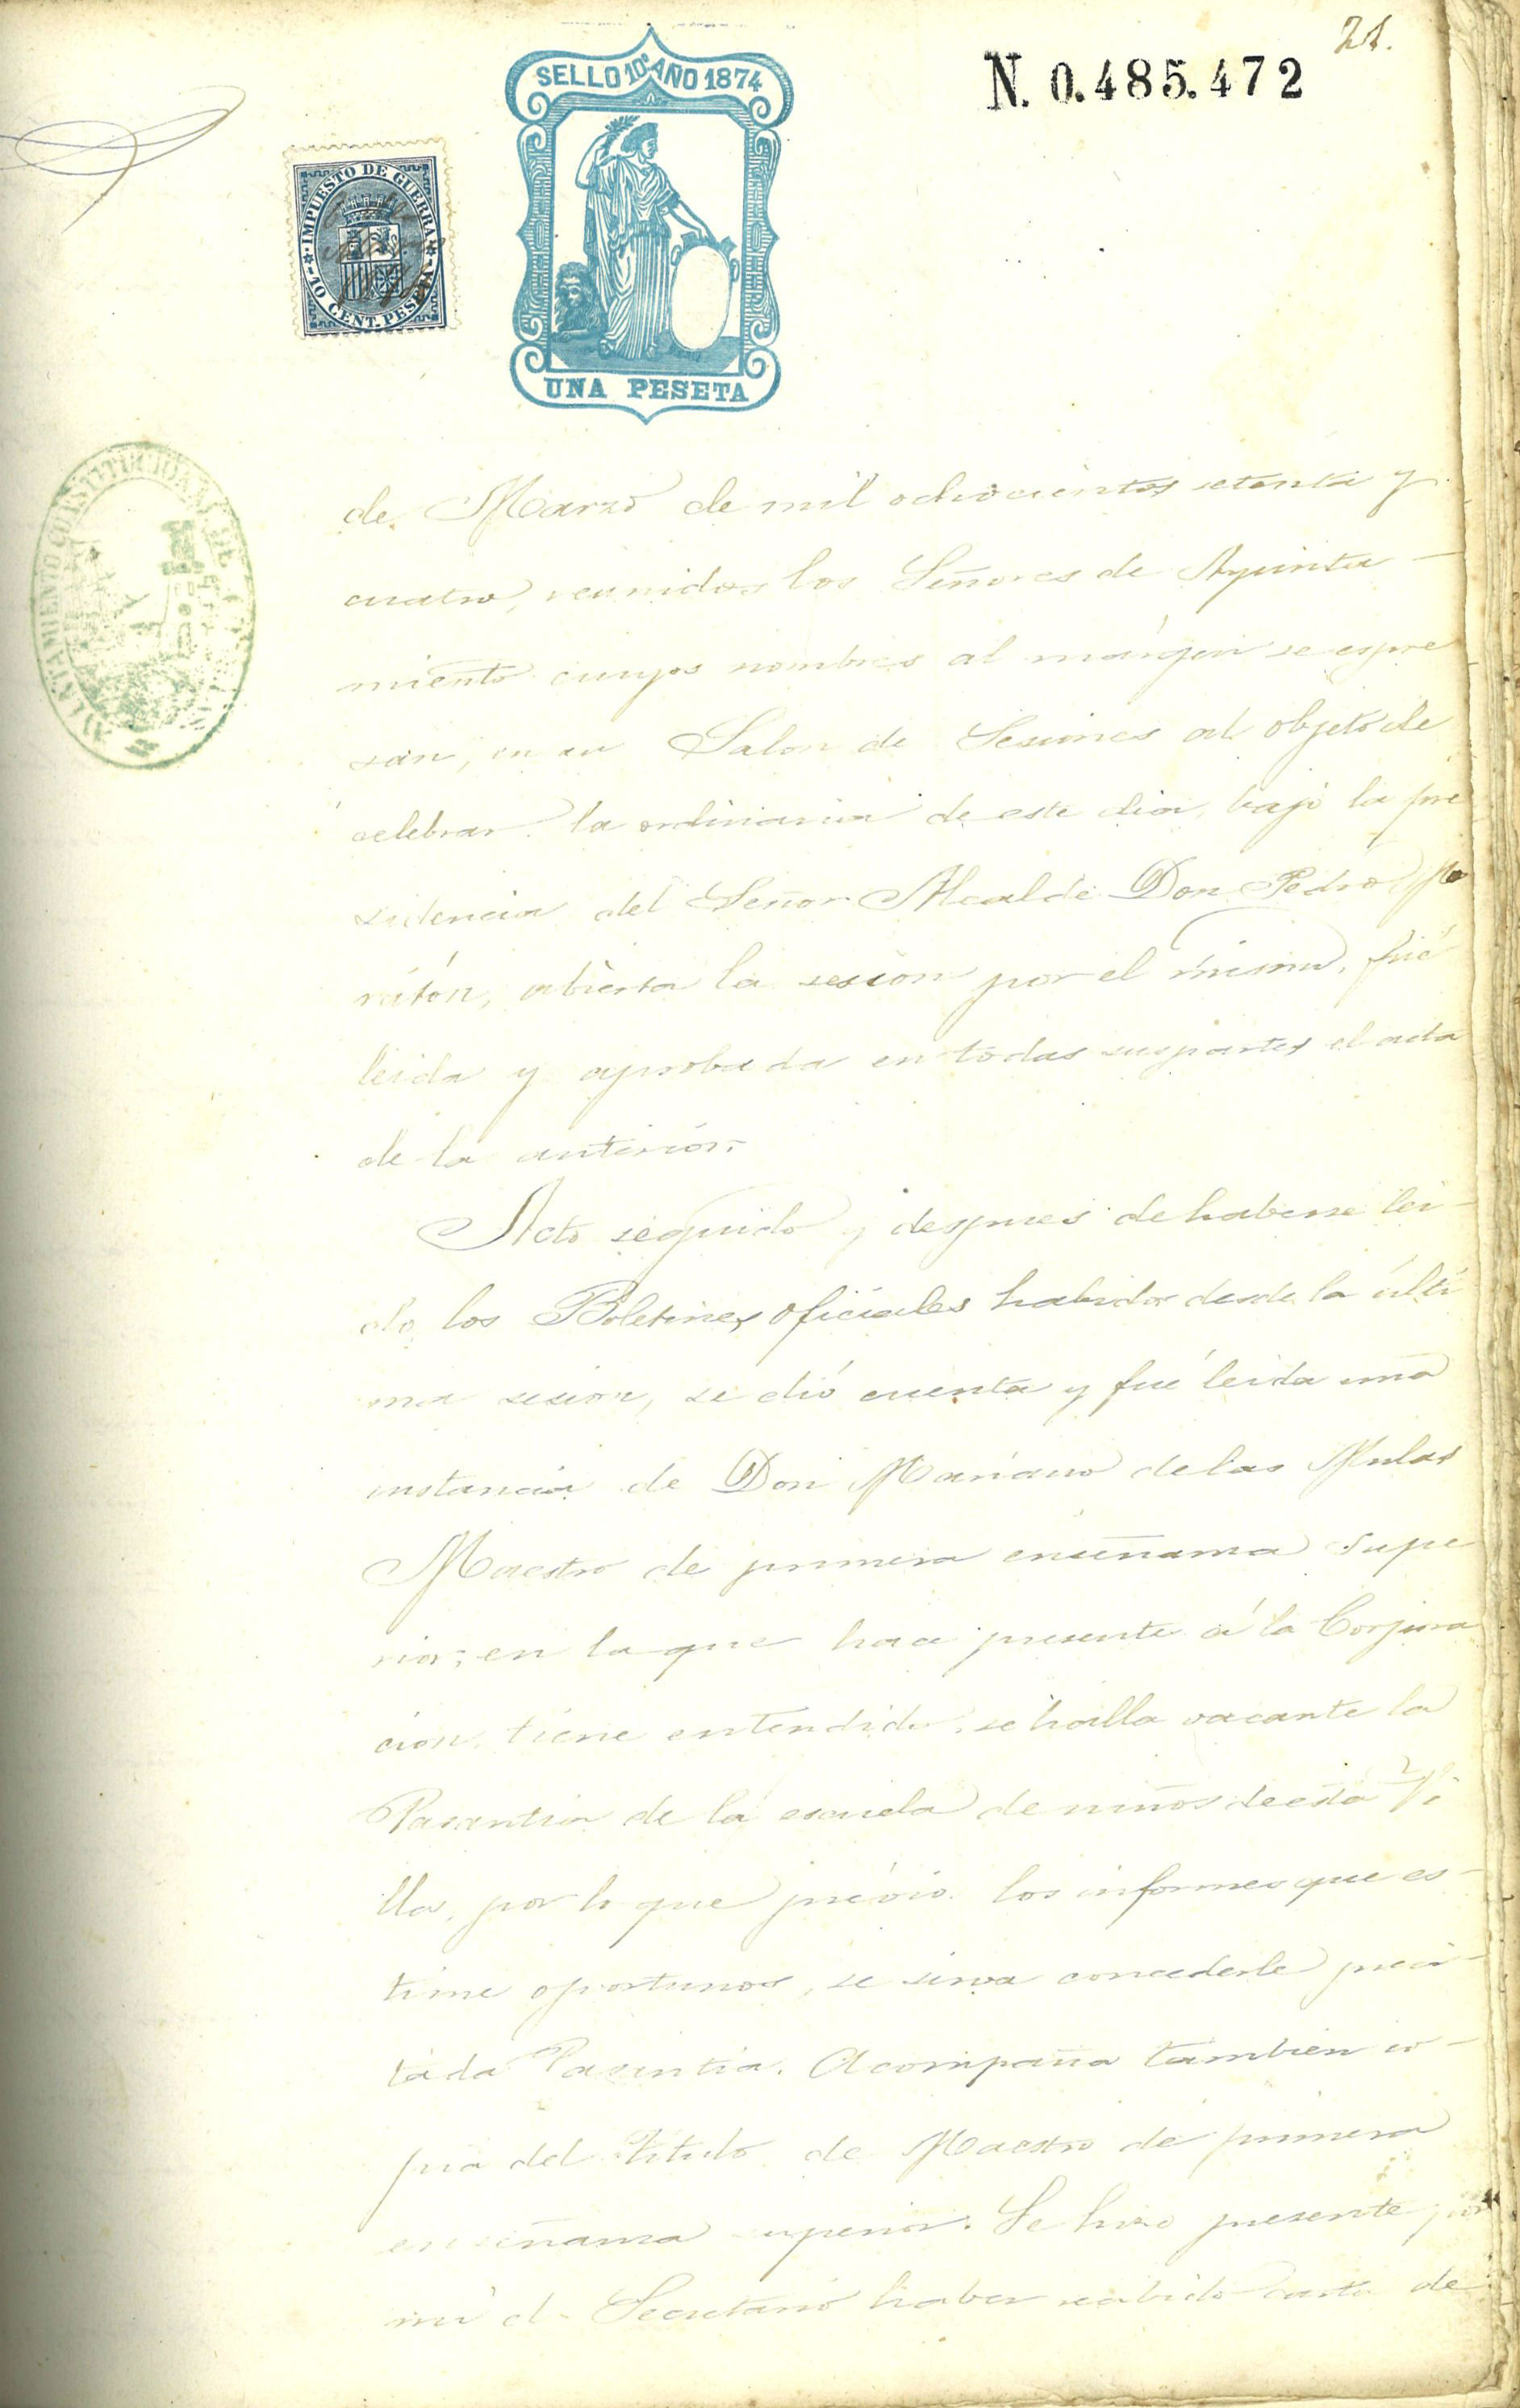 21.
N. 0.485.472
SELLO 10º AÑO 1874
IMPUESTO DE GUERRA
10 CENT. PESETA
UNA PESETA
AYUNTAMIENTO CONSTITUCIONAL DE
de Marzo de mil ochocientos setenta y
cuatro, reunidos los Señores de Ayunta-
miento cuyos nombres al márgen se espre
san, en su Salon de Sesiones al objeto de
celebrar la ordinaria de este dia, bajo la pre
sidencia del Señor Alcalde Don Pedro Mo
ratón, abierta la sesion por el mismo, fué
leida y aprobada en todas sus partes el acta
de la anterior.
Acto seguido y despues de haberse lei-
do los Boletines oficiales habidos desde la últi
ma sesion, se dió cuenta y fué leida una
instancia de Don Mariano de las Mulas
Maestro de primera enseñanza supe
rior; en la que hace presente á la Corpora
cion tiene entendido, se halla vacante la
Pasantia de la escuela de niños de esta Vi
lla, por lo que prévio los informes que es-
time oportunos, se sirva concederle preci-
tada Pasantia. Acompaña tambien co-
pia del título de Maestro de primera
enseñanza superior. Se hizo presente por
mi el Secretario haber recibido carta de